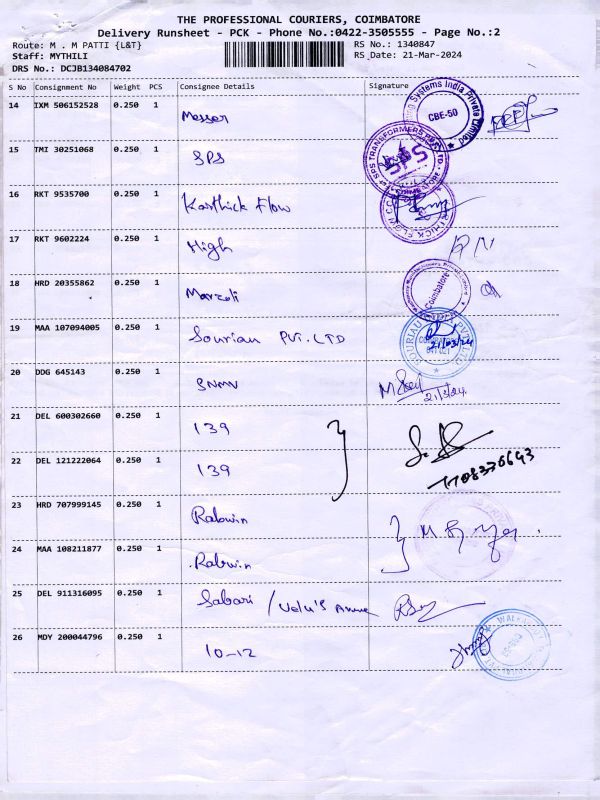 THE PROFESSIONAL COURIERS, COIMBATORE
Delivery Runsheet - PCK - Phone No.:0422-3505555 - Page No.:2
Route: M . M PATTI {L&T} RS No.: 1340847
Staff: MYTHILI RS Date: 21-Mar-2024
DRS No.: DCJB134084702
S No Consignment No Weight PCS Consignee Details Signature
14 IXM 506152528 0.250 1 Messer
CBE-50
15 TMI 30251068 0.250 1 SPS
SPS TRANSFORMERS
SPS
16 RKT 9535700 0.250 1 Karthick Flow
17 RKT 9602224 0.250 1 High
18 HRD 20355862 0.250 1 Marzoli
Coimbatore
19 MAA 107094005 0.250 1 Sourian PVT. LTD
21/03/24
20 DDG 645143 0.250 1 SNMV
21/3/24
21 DEL 600302660 0.250 1 139
22 DEL 121222064 0.250 1 139
23 HRD 707999145 0.250 1 Rabwin
24 MAA 108211877 0.250 1 Rabwin
25 DEL 911316095 0.250 1 Sabari / Velu's
26 MDY 200044796 0.250 1 10-12